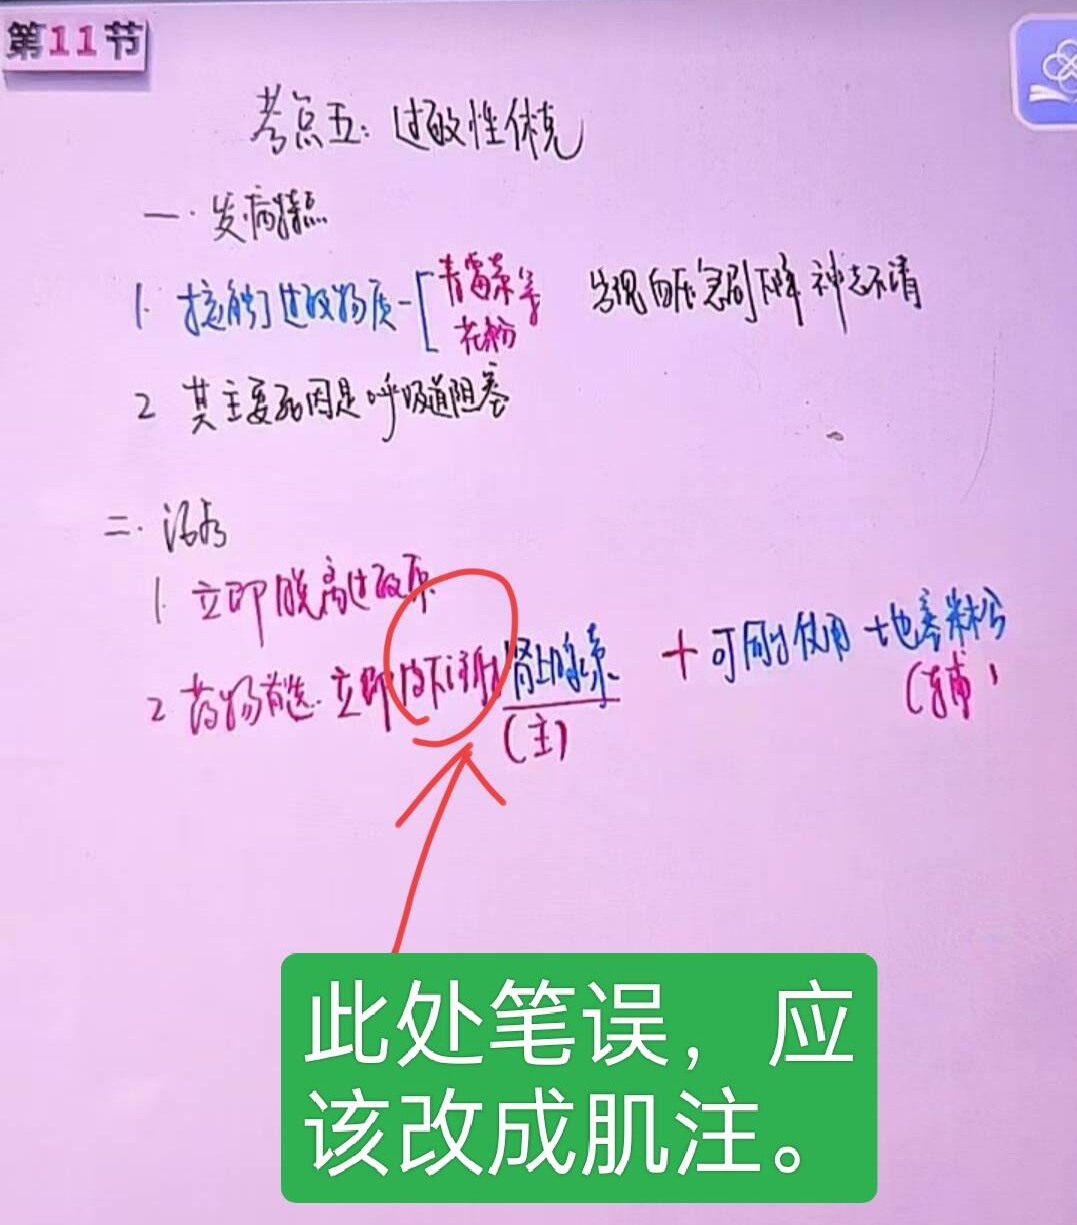 第11节
考点五：过敏性休克
一. 发病特点
1. 接触了过敏物质-[青霉素等 花粉 出现血压急剧下降 神志不清
2 其主要死因是呼吸道阻塞
二. 治疗
1. 立即脱离过敏原
2 药物首选. 立即皮下注射肾上腺素 + 可同时使用 地塞米松
(主) (辅)
此处笔误，应
该改成肌注。